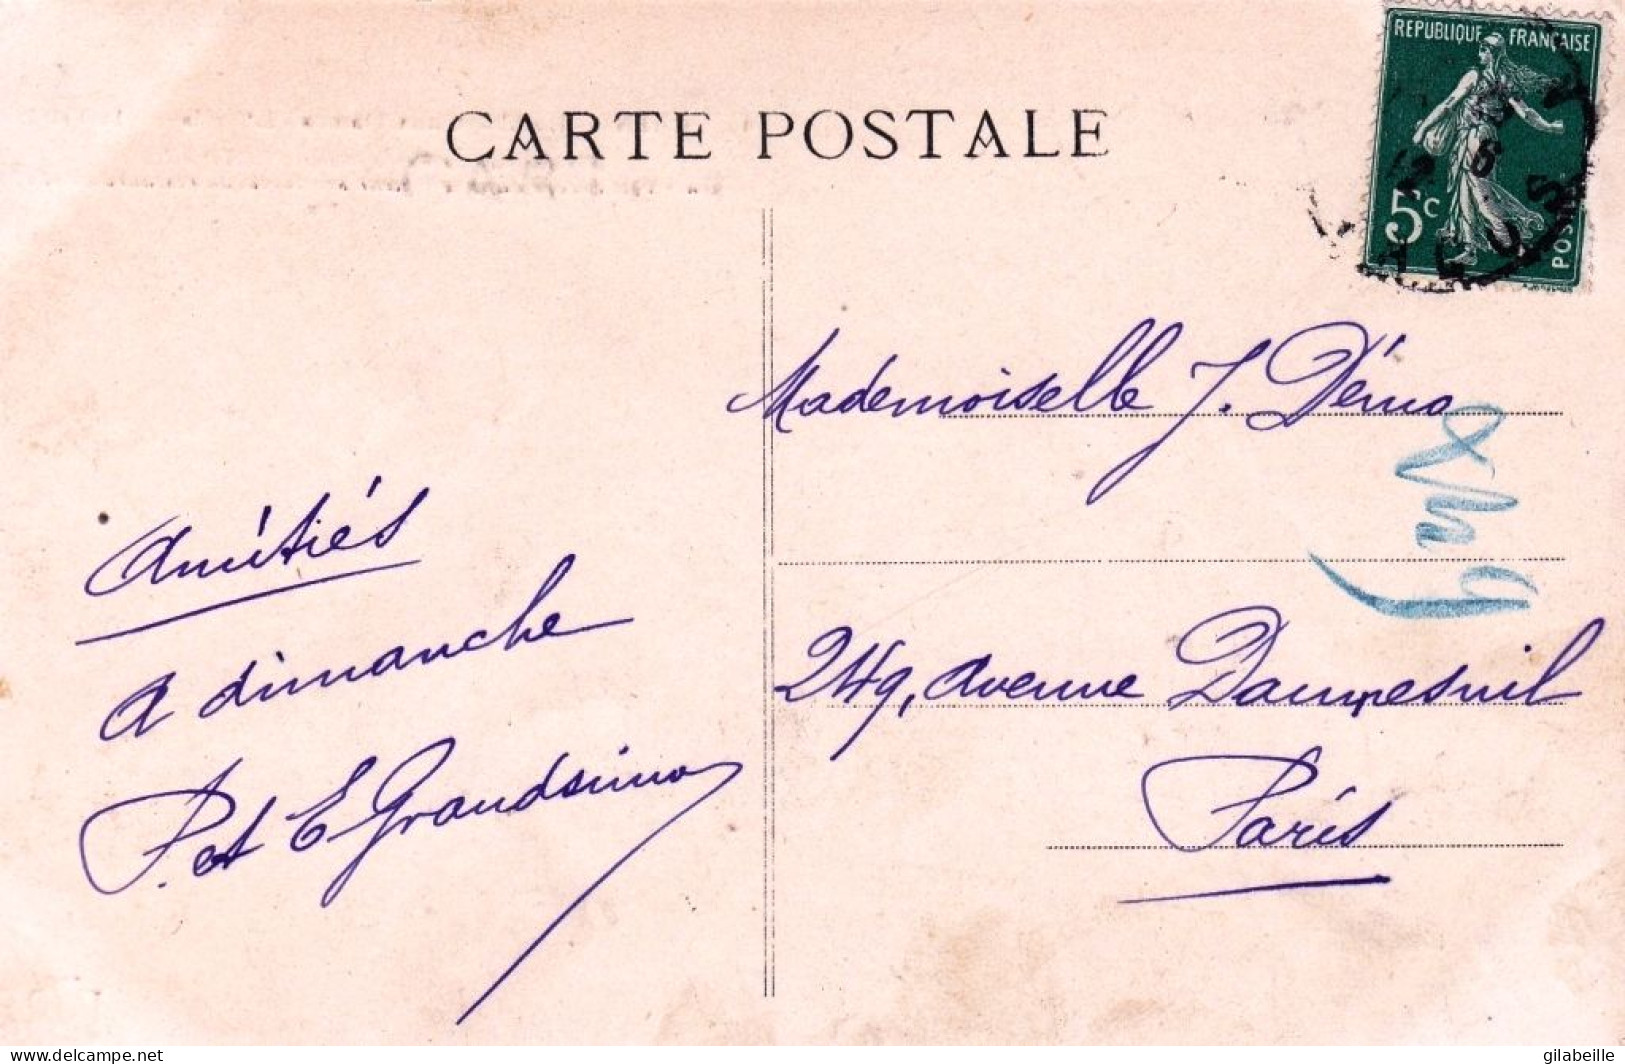 CARTE POSTALE
REPUBLIQUE FRANÇAISE
5c
POSTES
Amitiés
A dimanche
P. et E Grandsimon
Mademoiselle J. Démo
249, Avenue Daumesnil
Paris
www.delcampe.net
gilabeille